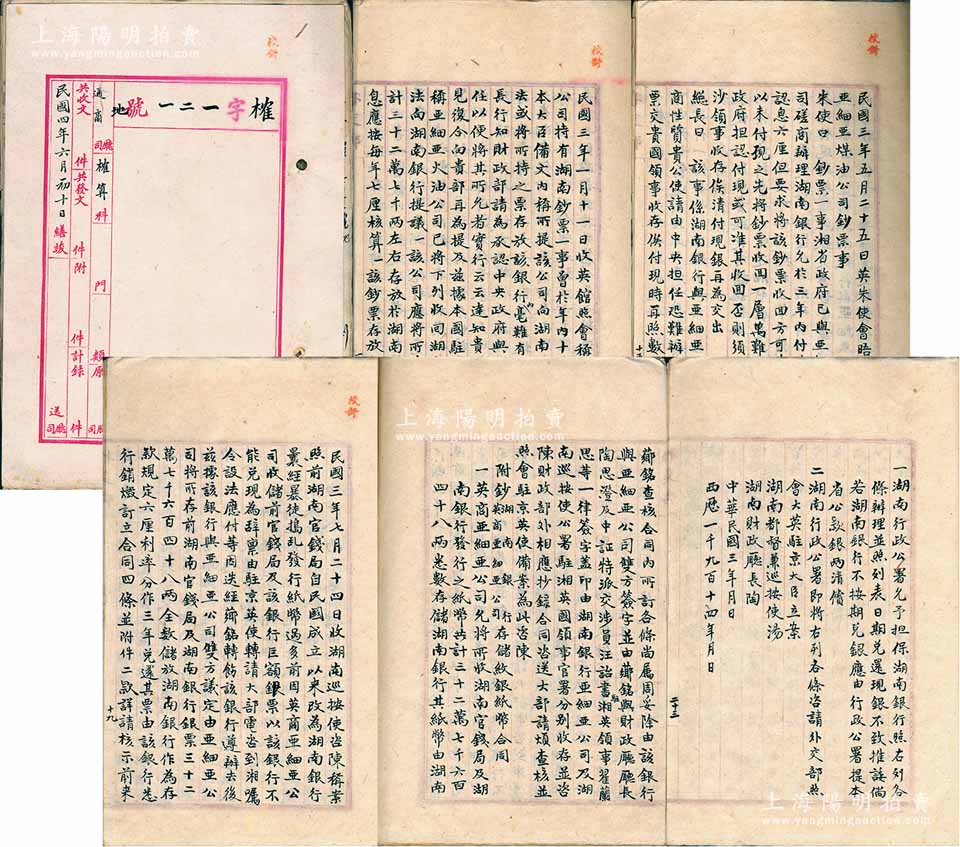 上海陽明拍賣
www.yangmingauction.com
校對
榷字一二一號
通商廳司榷算科門類
共收文件共發文件附件計錄件
民國四年六月初十日繕竣
送廳司
校對
民國三年一月十一日收英館照會稱
公司持有湖南鈔票一事曾於年內十
本大臣備文內稱所提該公司向湖南
法或將所持之票存放該銀行內毫難有
長行知財政部請為承認中央政府與
任以便將其所允者實行云云達知貴
見復合向貴部再為提及茲據本國駐
稱亞細亞火油公司已將下列收回湖
法向湖南銀行提議一該公司應將所
計三十二萬七千兩左右存放於湖南
息應按每年七厘核算一該鈔票存放
校對
民國三年五月二十五日英朱使會晤
亞細亞煤油公司鈔票事
朱使曰鈔票一事湘省政府已與亞
司磋商辦理湖南銀行允於三年內付
認息六厘但要求將該鈔票收回方可
以未付現之先將鈔票收回一層萬難
政府担認付現或可准其收回否則須
沙領事收存俟清付現銀再為交出
總長曰該事係湖南銀行與亞細亞
商性質貴公使請由中央担任恐難辦
票交貴國領事收存俟付現時再照數
校對
民國三年七月二十四日收湖南巡按使咨陳稱案
照前湖南官錢局自民國成立以來改為湖南銀行
曩經暴徒搗亂發行紙幣過多前因英商亞細亞公
司收儲前官錢局及該銀行巨額銀票以該銀行不
能兌現為辭稟由駐京英使轉請大部電咨到湘囑
令設法應付等因迭經薌銘轉飭該銀行遵辦去後
茲據該銀行與亞細亞公司雙方議定由亞細亞公
司將所存前湖南官錢局及湖南銀行銀票三十二
萬七千六百四十八兩全數儲放湖南銀行作為存
款規定六厘利率分作三年兌還其票由該銀行悉
行銷燬訂立合同四條並附件二款詳請核示前來
十九
薌銘查核合同內所訂各條尚屬周妥除由該銀行
與亞細亞公司雙方簽字並由薌銘與財政廳廳長
陶思澄及中証特派交涉員汪詒書駐湘英領事翟蘭
思等一律簽字蓋印由湖南銀行亞細亞公司及湖
南巡按使公署駐湘英國領事官署分別收存並咨
陳財政部外相應抄錄合同咨送大部請煩查核並
照會駐京英使備案為此咨陳
附鈔湖南銀行英商亞細亞公司存儲紋銀紙幣合同
一英商亞細亞公司允將所收湖南官錢局及湖
南銀行發行之紙幣共計三十二萬七千六百
四十八兩悉數存儲湖南銀行其紙幣由湖南
一湖南行政公署允予担保湖南銀行照右列各
條辦理並照列表日期兌還現銀不致推諉倘
若湖南銀行不按期兌銀應由行政公署提本
省公款銀兩清償
二湖南行政公署即將右列各條咨請外交部照
會大英駐京大臣立案
湖南都督兼巡按使湯
湖南財政廳長陶
中華民國三年月日
西歷一千九百十四年月日
二十三
上海陽明拍賣
www.yangmingauction.com
上海陽明拍賣
www.yangmingauction.com
上海陽明拍賣
www.yangmingauction.com